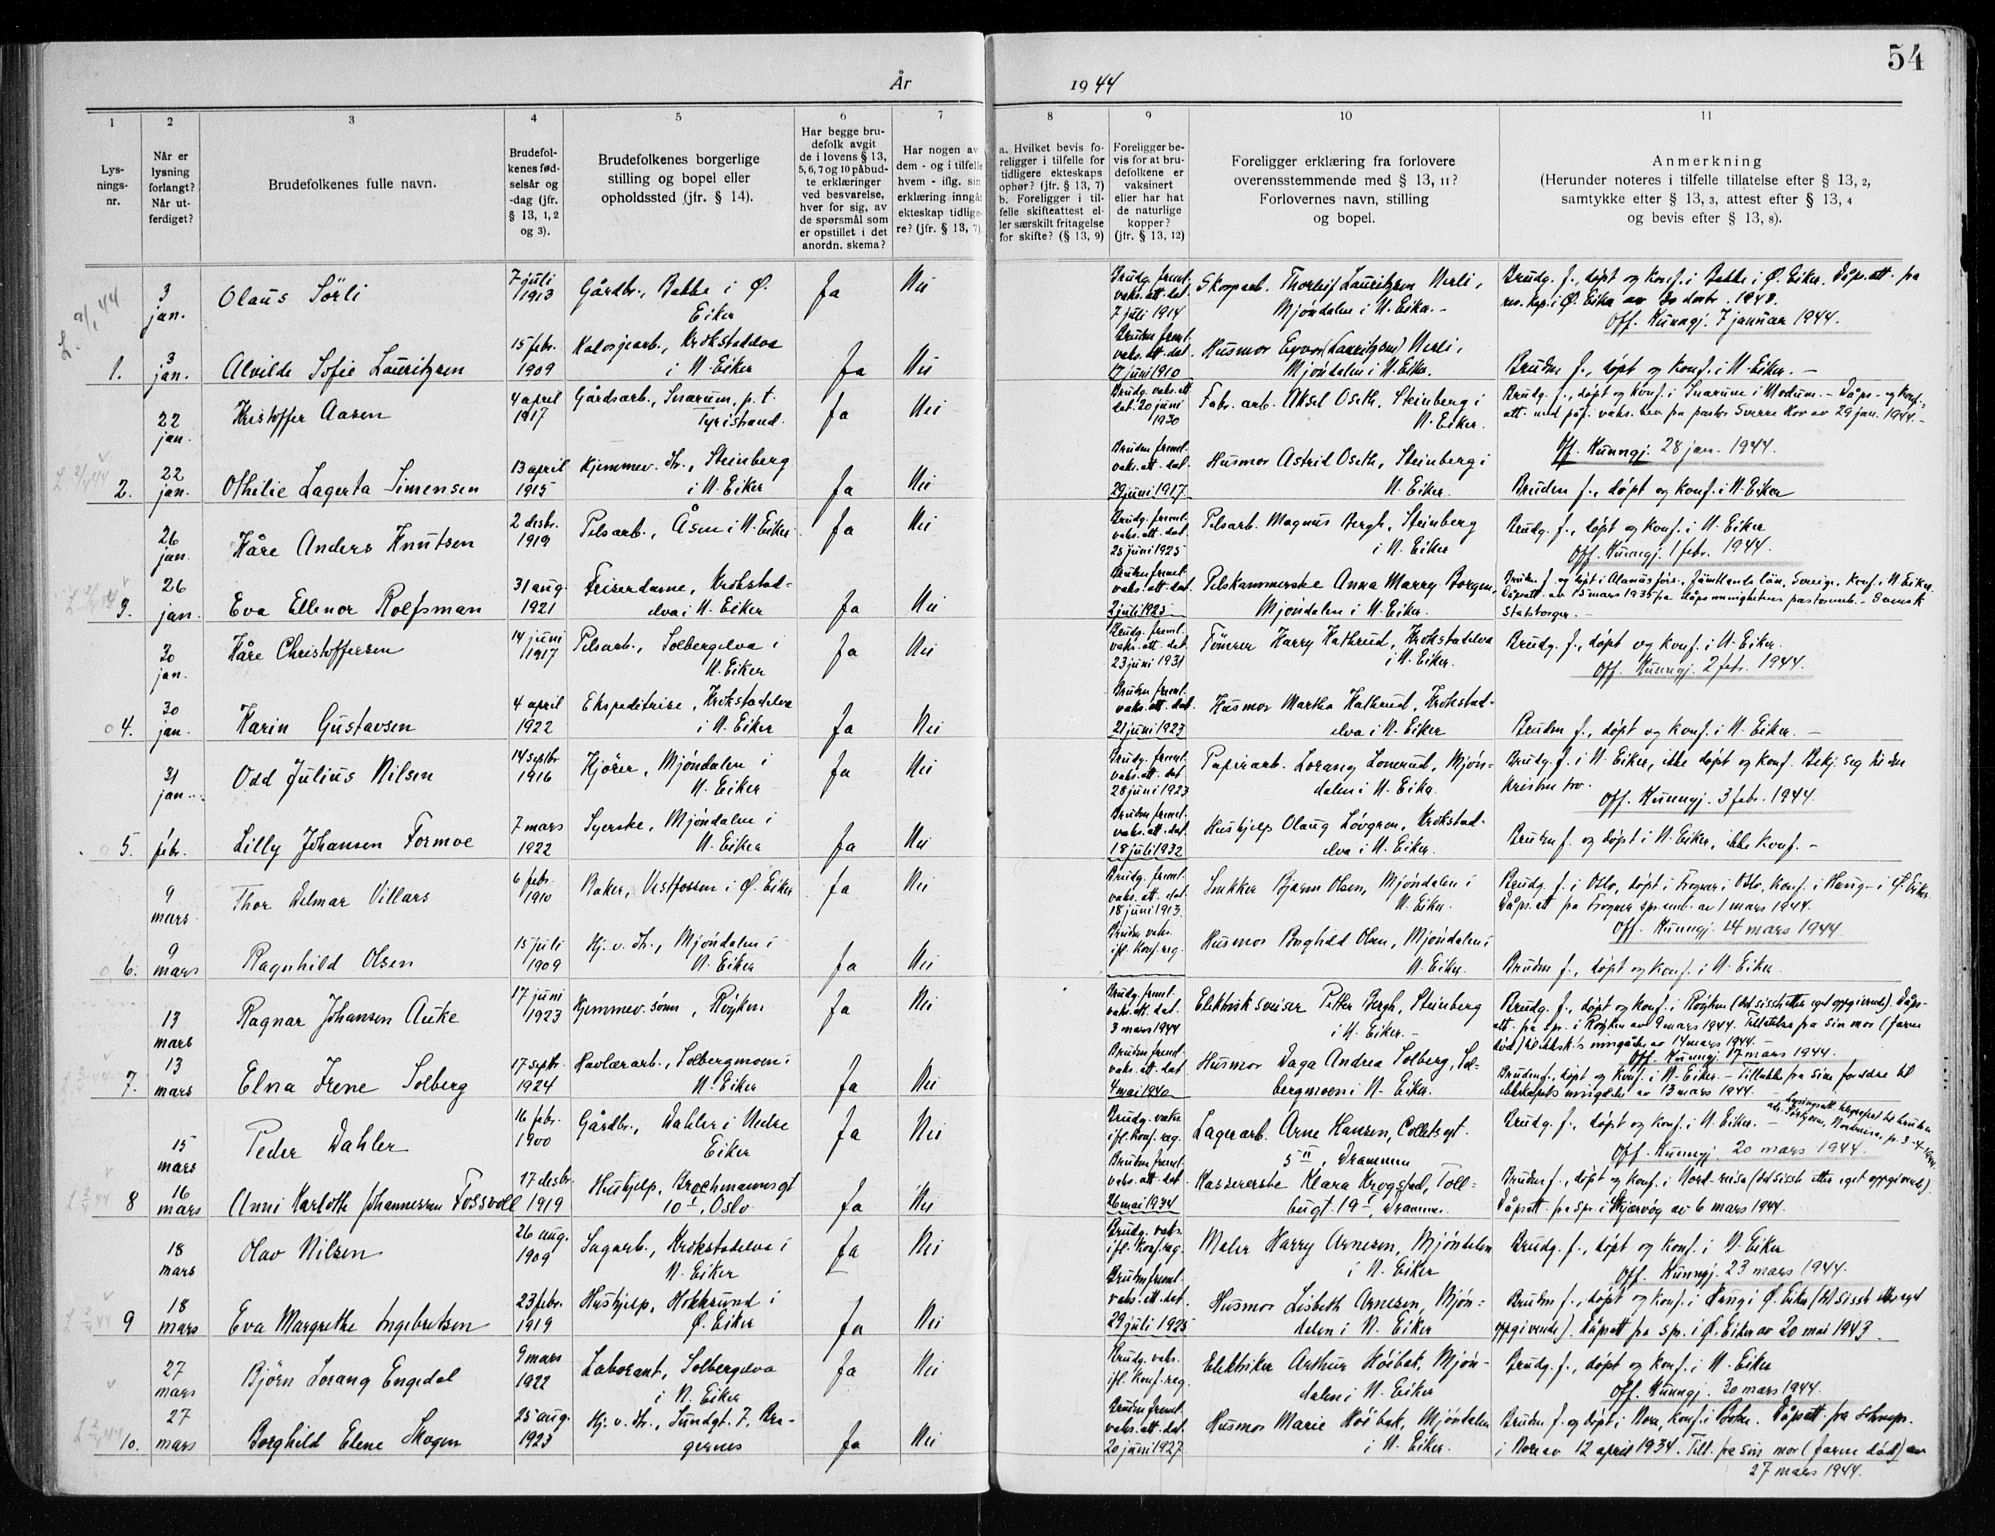 54
År 1944
1 2 3 4 5 6 7 8 9 10 11
Lys-
nings-
nr.
Når er
lysning
forlangt?
Når ut-
ferdiget?
Brudefolkenes fulle navn.
Brudefol-
kenes fød-
selsår og
-dag (jfr.
§ 13, 1, 2
og 3).
Brudefolkenes borgerlige
stilling og bopel eller
opholdssted (jfr. § 14).
Har begge bru-
defolk avgit
de i lovens § 13,
5, 6, 7 og 10 påbud-
te erklæringer
ved besvarelse,
hver for sig, av
de spørsmål som
er opstillet i det
anordn. skema?
Har nogen av
dem - og i tilfelle
hvem - iflg. sin
erklæring inngåt
ekteskap tidlige-
re? (jfr. § 13, 7).
a. Hvilket bevis fo-
religger i tilfelle for
tidligere ekteskaps
ophør? (jfr. § 13, 7)
b. Foreligger i til-
felle skifteattest el-
ler særskilt fritagelse
for skifte? (§ 13, 9)
Foreligger be-
vis for at bru-
defolkene er
vaksinert
eller har hat
de naturlige
kopper?
(jfr. § 13, 12)
Foreligger erklæring fra forlovere
overensstemmende med § 13, 11?
Forlovernes navn, stilling
og bopel.
Anmerkning
(Herunder noteres i tilfelle tillatelse efter § 13, 2,
samtykke efter § 13, 3, attest efter § 13, 4
og bevis efter § 13, 8).
3 jan. Olaus Sörli 7 juli 1913 Gårdbr., Bakke i Ø. Eiker Ja Nei Brudg. freml. vaks. att. dat. 7 juli 1914 Skoparb. Thorleif Lauritzen Merli, Mjöndalen i N. Eiker. - Brudg. f., döpt og konf. i Bakke i Ø. Eiker. Dåps. att. fra res. kap. i Ø. Eiker av 30 desbr. 1943. Off. Kunngj. 7 januar 1944.
1. 3 jan. Alvilde Sofie Lauritzen 15 febr. 1909 Kalosjearb., Krokstadelva i N. Eiker Ja Nei Bruden freml. vaks. att. dat. 17 juni 1910 Husmor Eyvor (Lauritzen) Merli, Mjöndalen i N. Eiker. Bruden f., döpt og konf. i N. Eiker. -
22 jan. Kristoffer Aasen 4 april 1917 Gårdsarb., Snarum, p. t. Tyristrand. Ja Nei Brudg. vaks. att. dat. 20 juni 1930 Fabr. arb. Aksel Oseth, Steinberg i N. Eiker. Brudg. f., döpt og konf. i Snarum i Modum. - Dåps- og konf. att. med påf. vaks. fra pastor Sverre av 29 jan. 1944. - Off. Kunngj. 28 jan. 1944.
2. 22 jan. Othilie Lagerta Simensen 13 april 1915 Hjemmev. dtr., Steinberg i N. Eiker Ja Nei Bruden freml. vaks. att. dat. 29 juni 1917 Husmor Astrid Oseth, Steinberg i N. Eiker. Bruden f., döpt og konf. i N. Eiker
26 jan. Kåre Anders Knutsen 2 desbr. 1919 Pelsarb., Åsen i N. Eiker Ja Nei Brudg. freml. vaks. att. dat. 25 juni 1925 Pelsarb. Magnus Bergh, Steinberg i N. Eiker Brudg. f., döpt og konf. i N. Eiker Off. Kunngj. 1 febr. 1944.
3. 26 jan. Eva Ellenor Rolfsman 31 aug. 1921 Friserdame, Krokstad- elva i N. Eiker Ja Nei Bruden freml. vaks. att. dat. 2 juli 1923 Pelskammerske Anna Marry Borgen, Mjöndalen i N. Eiker. Bruden f. og döpt i Alanäs förs., Jämtlands län, Sverige, konf. N. Eiker. Dåpsatt. av 15 mars 1935 fra pastorsemb. - Svensk statsborger. -
30 jan. Kåre Christoffersen 14 juni 1917 Pelsarb., Solbergelva i N. Eiker Ja Nei Brudg. freml. vaks. att. dat. 23 juni 1931 Tömrer Harry Kathrud, Krokstadelva i N. Eiker. Brudg. f., döpt og konf. i N. Eiker. Off. Kunngj. 2 febr. 1944.
4. 30 jan. Karin Gustavsen 4 april 1922 Ekspeditrise, Krokstadelva i N. Eiker Ja Nei Bruden freml. vaks. att. dat. 21 juni 1923 Husmor Martha Kathrud, Krokstad- elva i N. Eiker Bruden f., döpt og konf. i N. Eiker. -
31 jan. Odd Julius Nilsen 14 septbr. 1916 Kjörer, Mjöndalen i N. Eiker Ja Nei Brudg. freml. vaks. att. dat. 28 juni 1923 Papirarb. Lorang Lonerud, Mjön- dalen i N. Eiker. Brudg. f. i N. Eiker, ikke döpt og konf. Bekj. seg til den kristne tro. Off. Kunngj. 3 febr. 1944.
5. febr. Lilly Johansen Formoe 7 mars 1922 Syerske, Mjöndalen i N. Eiker Ja Nei Bruden freml. vaks. att. dat. 18 juli 1932 Hushjelp Olaug Lövgren, Krokstad- elva i N. Eiker. Bruden f. og döpt i N. Eiker, ikke konf. -
9 mars Thor Delmar Villars 6 febr. 1910 Baker, Vestfossen i Ø. Eiker Ja Nei Brudg. freml. vaks. att. dat. 18 juni 1913 Snekker Bjarne Olsen, Mjöndalen i N. Eiker. Brudg. f. i Oslo, döpt i Frogner i Oslo, konf. i Haug i Ø. Eiker. Dåps. att. fra Frogner spr. emb. av 1 mars 1944. Off. Kunngj. 14 mars 1944
6. 9 mars Ragnhild Olsen 15 juli 1909 Hj. v. dtr., Mjöndalen i N. Eiker Ja Nei Bruden vaks. ifl. konf. reg. Husmor Borghild Olsen, Mjöndalen i N. Eiker. Bruden f., döpt og konf. i N. Eiker.
13 mars Ragnar Johansen Auke 17 juni 1923 Hjemmev. sönn, Röyken Ja Nei Brudg. freml. vaks. att. dat. 3 mars 1944 Elektrisk sveiser Petter Bergh, Steinberg i N. Eiker. - Brudg. f., döpt og konf. i Röyken (det sisste etter eget oppgivende). Dåps- att. fra sp. i Röyken av 9 mars 1944. Tillatelse fra sin mor (faren död) til ektsk.s inngåelse av 14 mars 1944. - Off. Kunngj. 17 mars 1944.
7. 13 mars Elna Irene Solberg 17 septr. 1924 Havlararb., Solbergmoen i N. Eiker Ja Nei Bruden freml. vaks. att. dat. 4 mai 1940 Husmor Daga Andrea Solberg, Sol- bergmoen i N. Eiker. Bruden f., döpt og konf. i N. Eiker. - Tillatelse fra sine foreldre til ekteskapets inngåelse av 13 mars 1944. -
15 mars Peder Dahler 16 febr. 1900 Gårdbr., Dahler i Nedre Eiker Ja Nei Brudg. vaks. ifl. konf. reg. Lagerarb. Arne Hansen, Colletsgt. 5 II, Drammen Brudg. f., döpt og konf. i N. Eiker. - Off. Kunngj. 20 mars 1944.
8 16 mars Anni Karlotte Johannessen Fossvoll 17 desbr. 1919 Hushjelp, Brochmannsgt 10 I, Oslo Ja Nei Bruden freml. vaks. att. dat. 26 mai 1934 Kassererske Klara Krogstad, Toll- bugt. 19 I, Drammen. Bruden f., döpt og konf. i Nordreisa (det sisste etter eget oppgivende). Dåpsatt. fra spr. i Skjærvöy av 6 mars 1944.
18 mars Olav Nilsen 26 aug. 1909 Sagarb., Krokstadelva i N. Eiker Ja Nei Brudg. vaks. ifl. konf. reg. Maler Harry Arnesen, Mjöndalen i N. Eiker Brudg. f., döpt og konf. i N. Eiker Off. Kunngj. 23 mars 1944.
9 18 mars Eva Margrethe Ingebretsen 23 febr. 1919 Hushjelp, Hokksund i Ø. Eiker Ja Nei Bruden freml. vaks. att. dat. 29 juli 1925 Husmor Lisbeth Arnesen, Mjön- dalen i N. Eiker Bruden f., döpt og konf. i Haug i Ø. Eiker (det sisste etter eget oppgivende). Dåpsatt fra sp. i Ø. Eiker av 20 mai 1943.
27 mars Björn Lorang Engedal 9 mars 1922 Laborant, Solbergelva i N. Eiker Ja Nei Brudg. vaks. ifl. konf. reg. Elektriker Arthur Höibak, Mjön- dalen i N. Eiker Brudg. f., döpt og konf. i N. Eiker Off. Kunngj. 30 mars 1944.
10. 27 mars Borghild Elene Skogen 25 aug. 1923 Hj. v. dtr., Sundgt. 7, Bra- gernes Ja Nei Bruden freml. vaks. att. dat. 20 juni 1927 Husmor Marie Höibak, Mjöndalen i N. Eiker. Bruden f. og döpt i Nore, konf. i Dåpsatt fra i Nore av 12 april 1934. Till. fra sin mor (faren död) av 27 mars 1944.